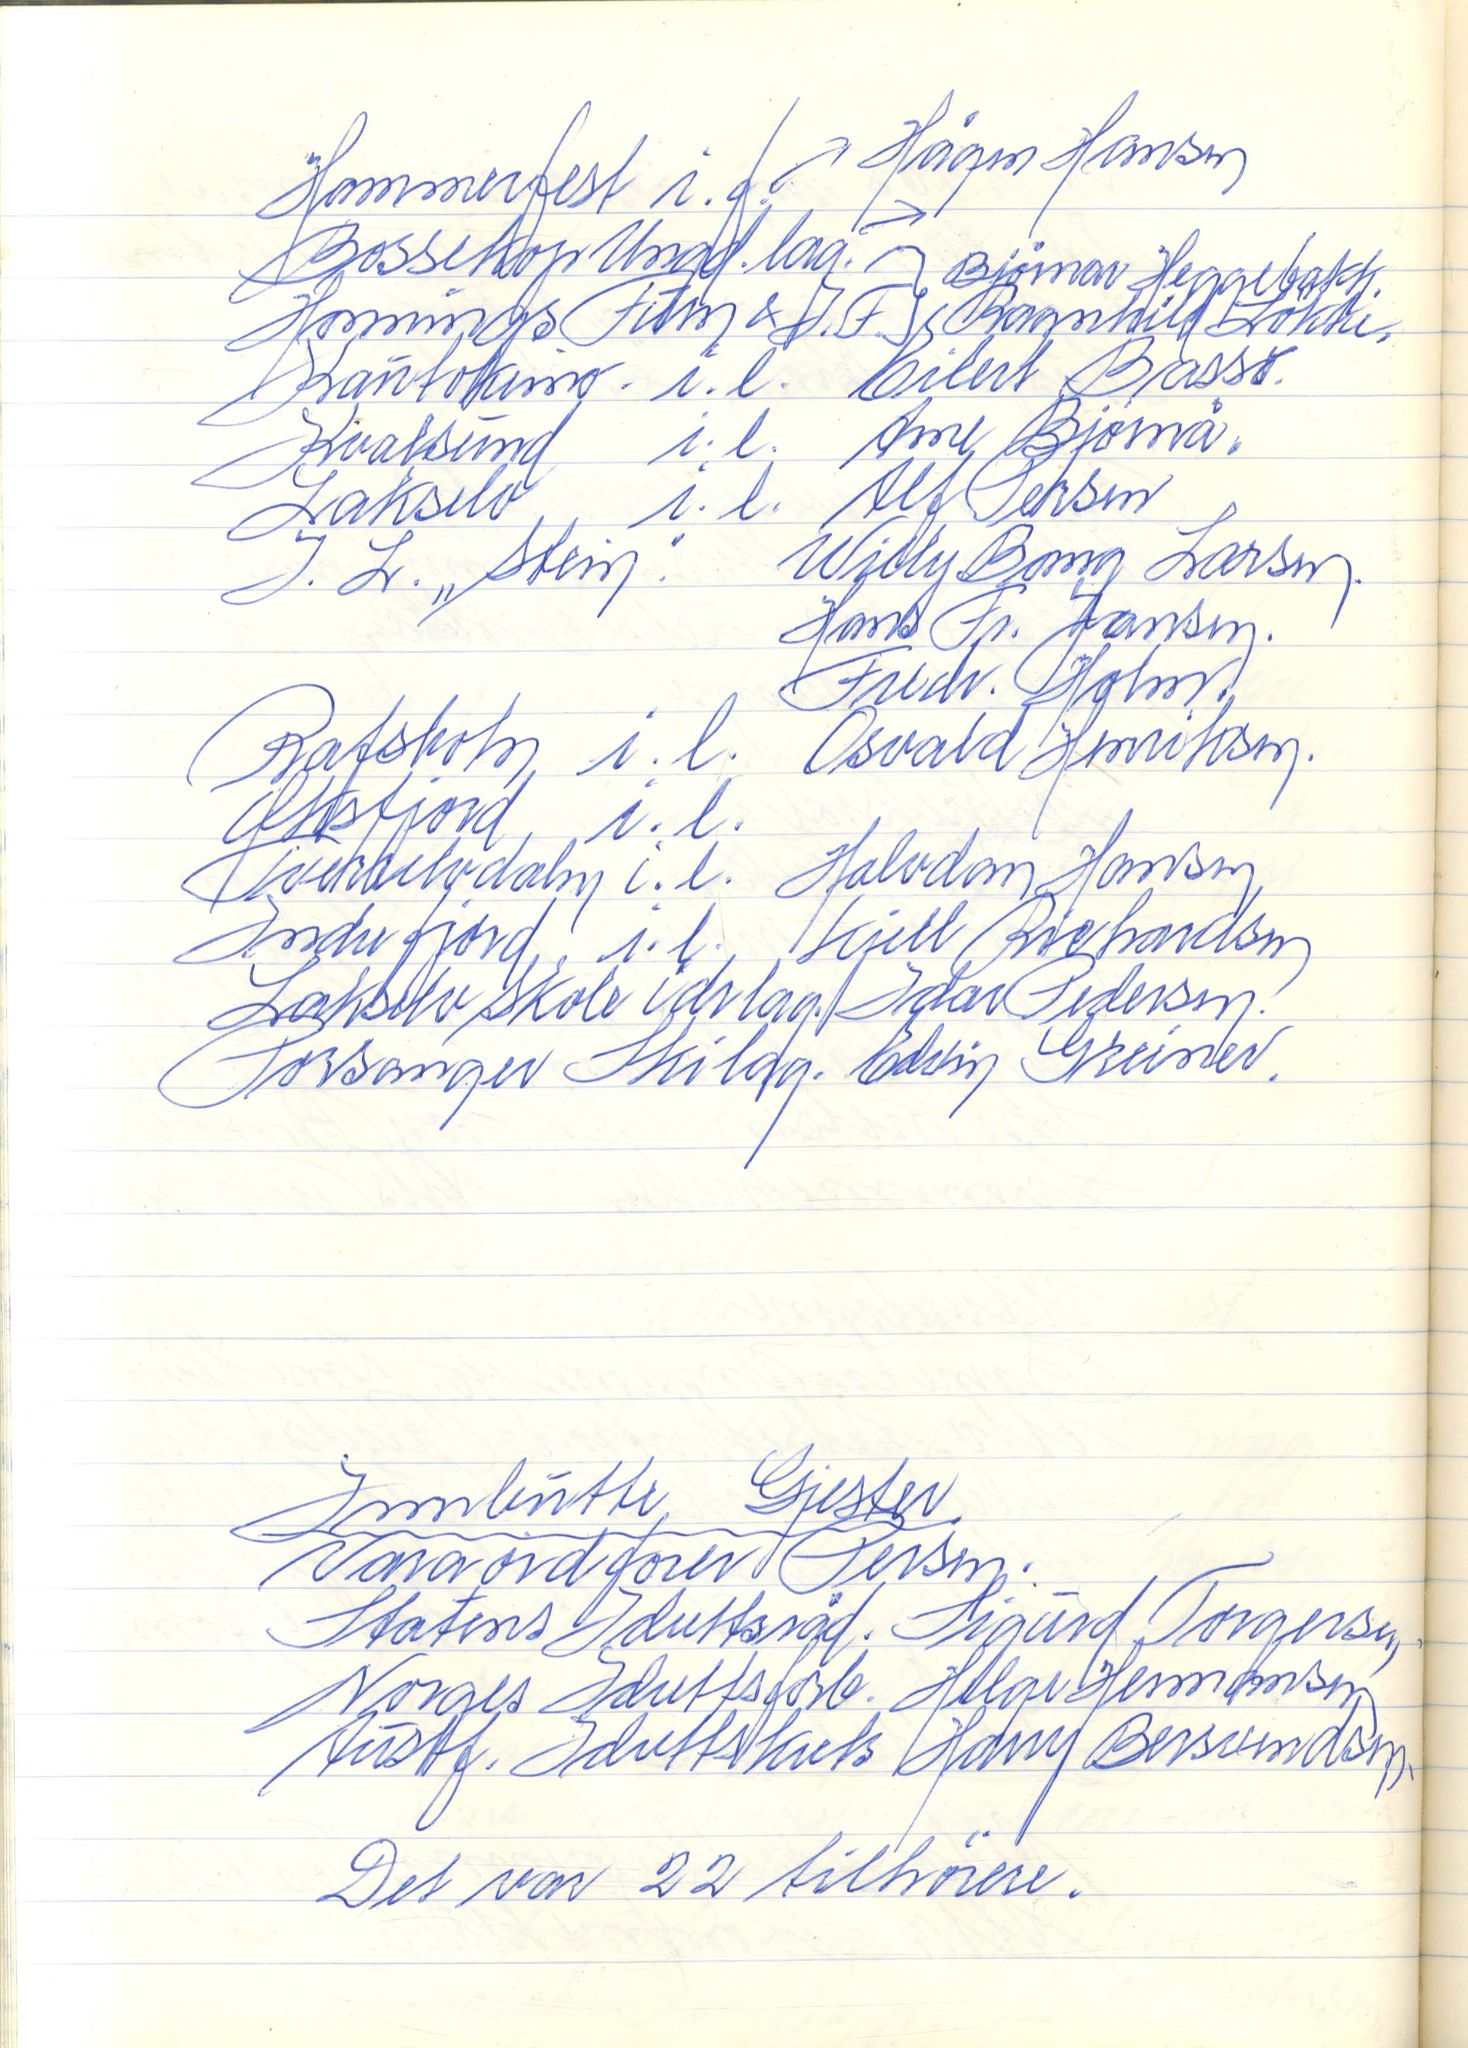 Hammerfest i.g. → Hågen Hansen
Bossekop Ungd.lag. → Björnar Heggebakk.
Honnings Turn & I.F. Ragnhild Lökke.
Kautokeino. i.l. Eilert Basso.
Kvalsund i.l. Arne Björnå.
Lakselv i.l. Alf Persen
I. L. „Stein". Willy Bang Larsen.
Hans Fr. Hansen.
Fredr. Holm.
Rafsbotn i.l. Osvald Henriksen.
i.l.
Tverrelvdalen i.l. Halvdan Hansen
Indrefjord i.l. Kjell Richardsen
Lakselv skole idr lag. Idar Pedersen.
Porsanger Skilag. Edvin Greiner.
Innbudte Gjester.
Varaordfører Persen.
Statens Idrettsråd. Sigurd Torgersen.
Norges Idrettsforb. Helge Hermansen
Austf. Idrettskrets Harry Bersvendsen.
Det var 22 tilhörere.